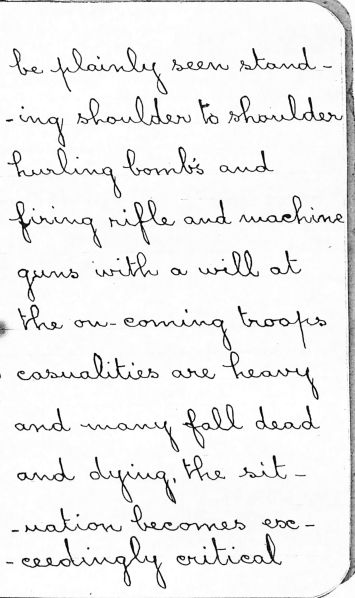 be plainly seen stand-
-ing shoulder to shoulder
hurling bombs and
firing rifle and machine
guns with a will at
the on-coming troops
casualities are heavy
and many fall dead
and dying, the sit-
-uation becomes exc-
-ceedingly critical